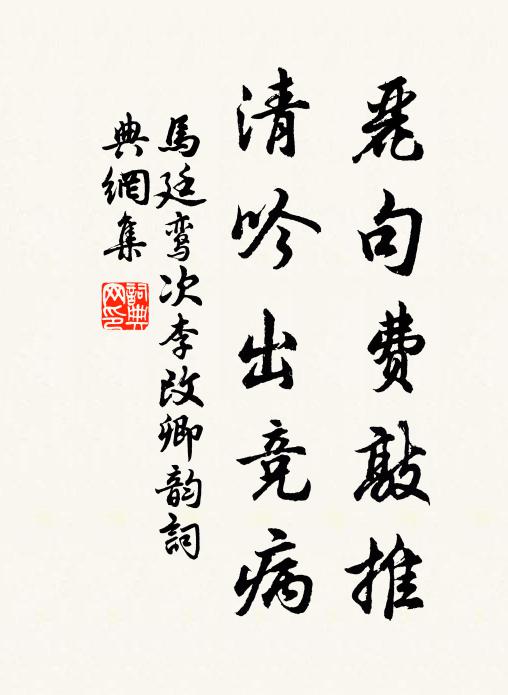 麗句费敲推
清吟出竞病
馬廷鸾次李改卿韵詞
典網集
詞典网印